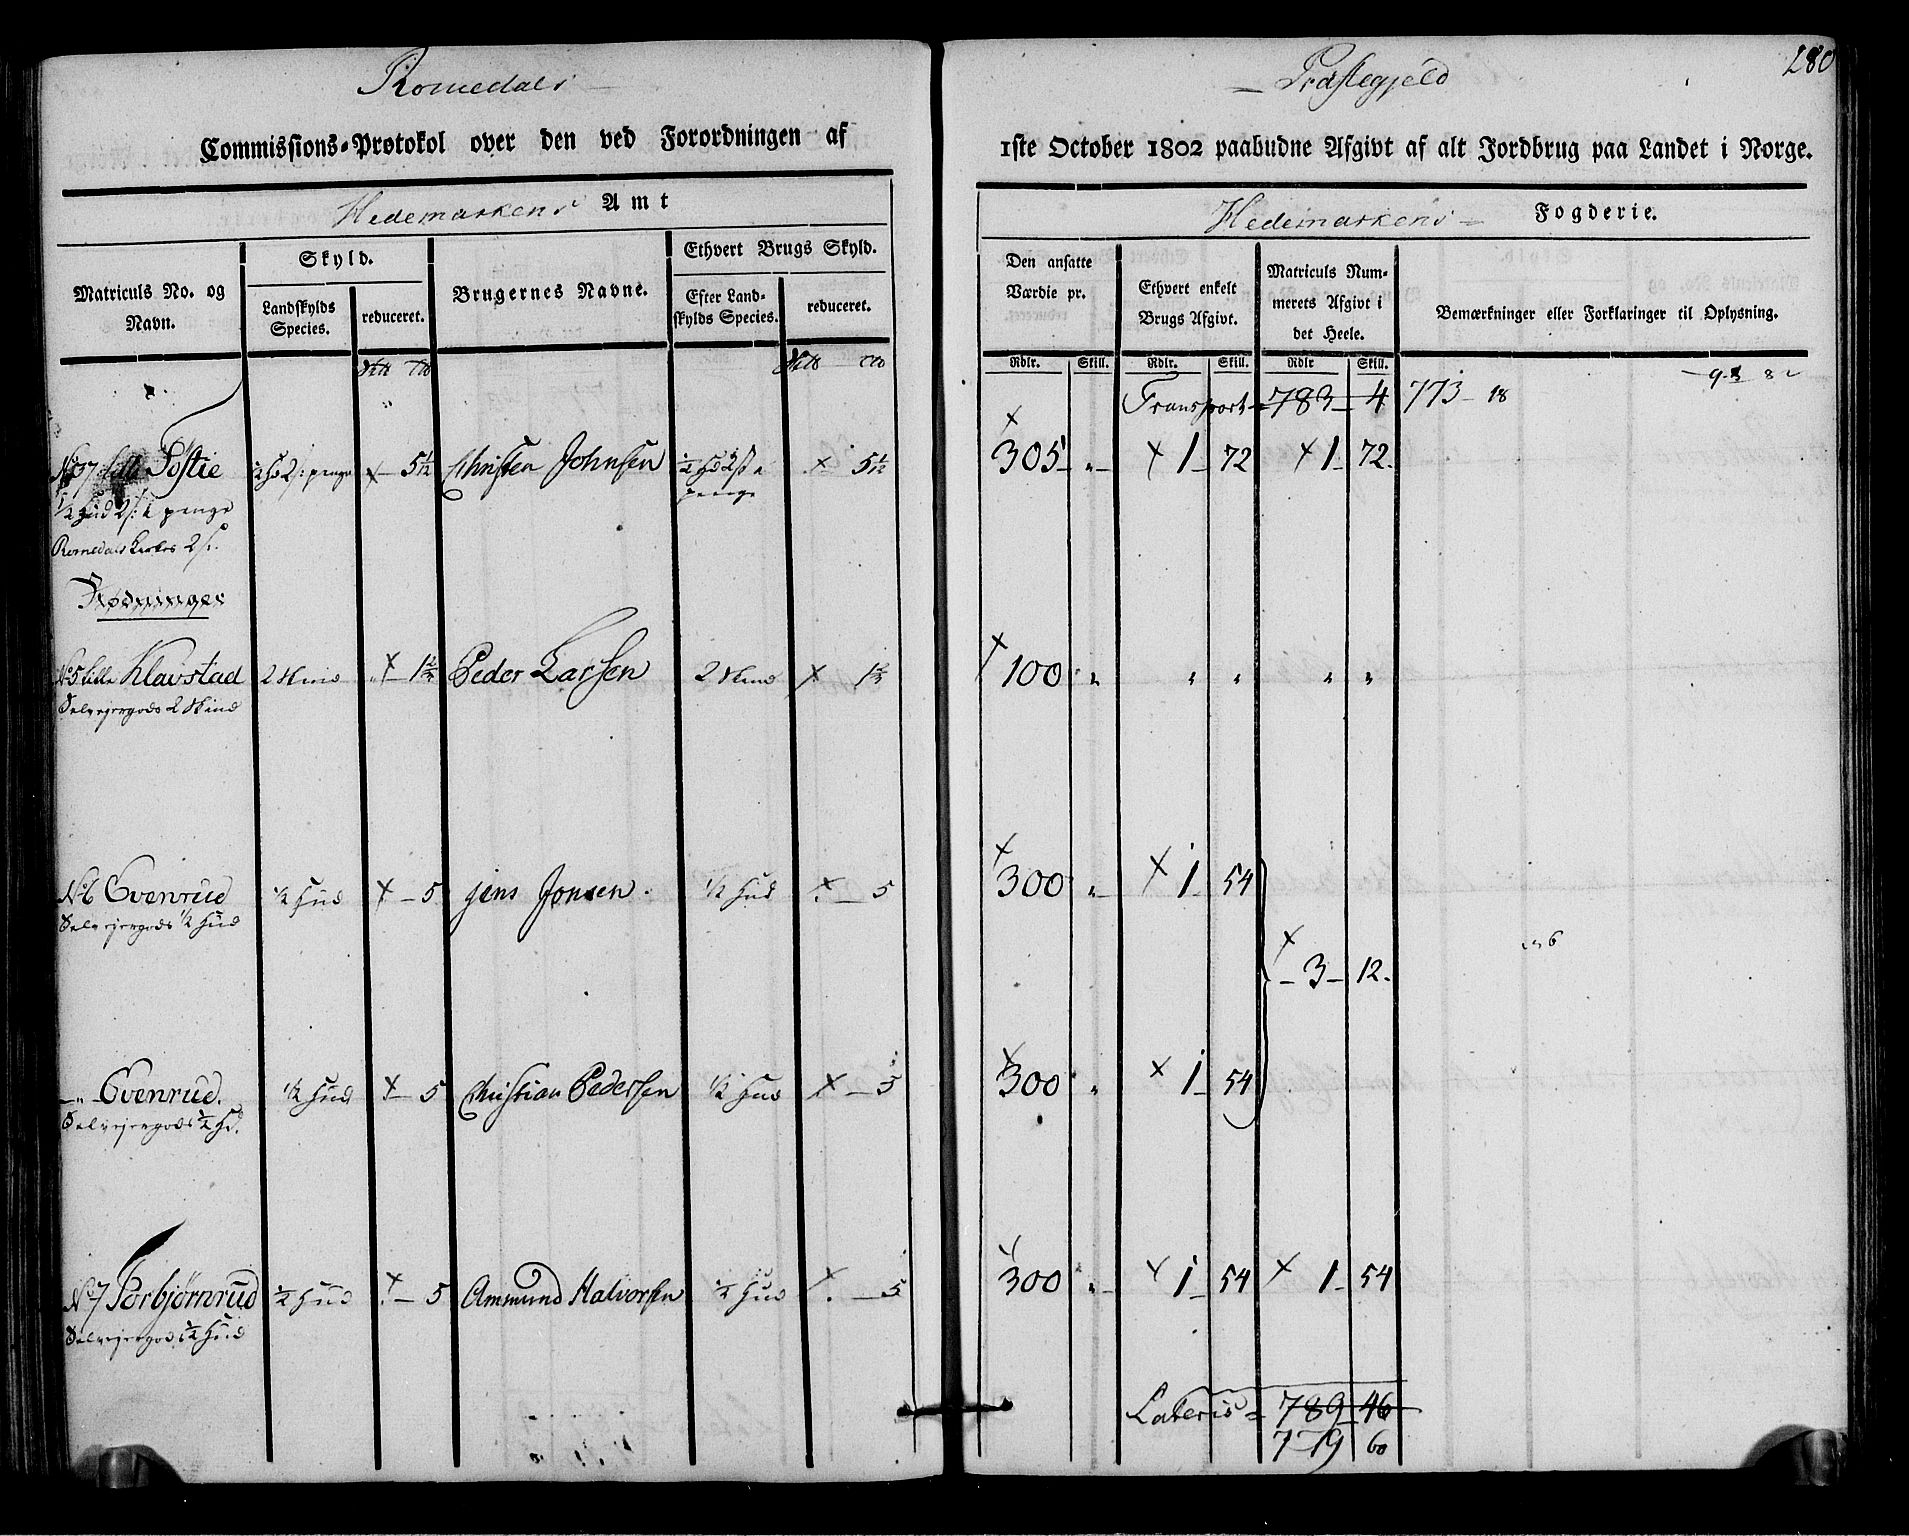 Romedals
Præstegjeld
280
Commissions-Protokol over den ved Forordningen af
1ste October 1802 paabudne Afgivt af alt Jordbrug paa Landet i Norge.
Hedemarkens Amt
Hedemarkens Fogderie.
Matriculs No. og Navn.
Skyld.
Landskylds Species.
reduceret.
Brugernes Navne.
Ethvert Brugs Skyld.
Efter Landskylds Species.
reduceret.
Den ansatte Værdie pr.
Ethvert enkelt Brugs Afgivt.
Matriculs Nummerets Afgivt i det Heele.
Bemærkninger eller Forklaringer til Oplysning.
Rdlr. Skill. Rdlr. Skill. Rdlr Skill.
Transport 783 4 773 18
Christen Johnsen 5 1/12 305 1 72 1 72
1/2 Hud 2
penge
Romedals Kirkes 2
Rødninger
No 5 lille Klavstad 2 Skind 1 2/3 Peder Larsen 2 Skind 1 2/3 100 " " " " "
Selvejergods 2 Skind
No 6 Evenrud 1/2 Hud 5 Jens Jonsen 1/2 Hud 5 300 " 1 54
Selvejergods 1/2 Hud
3 12
" Evenrud 1/2 Hud 5 Christian Pedersen 1/2 Hud 5 300 " 1 54
Selvejergods 1/2 Hd.
No 7 Torbjørnrud 1/2 Hud 5 Ammund Halvorsen 1/2 Hud 5 300 " 1 54 1 54
Selvejergods 1/2 Hud
Lateris 789 46
779 60